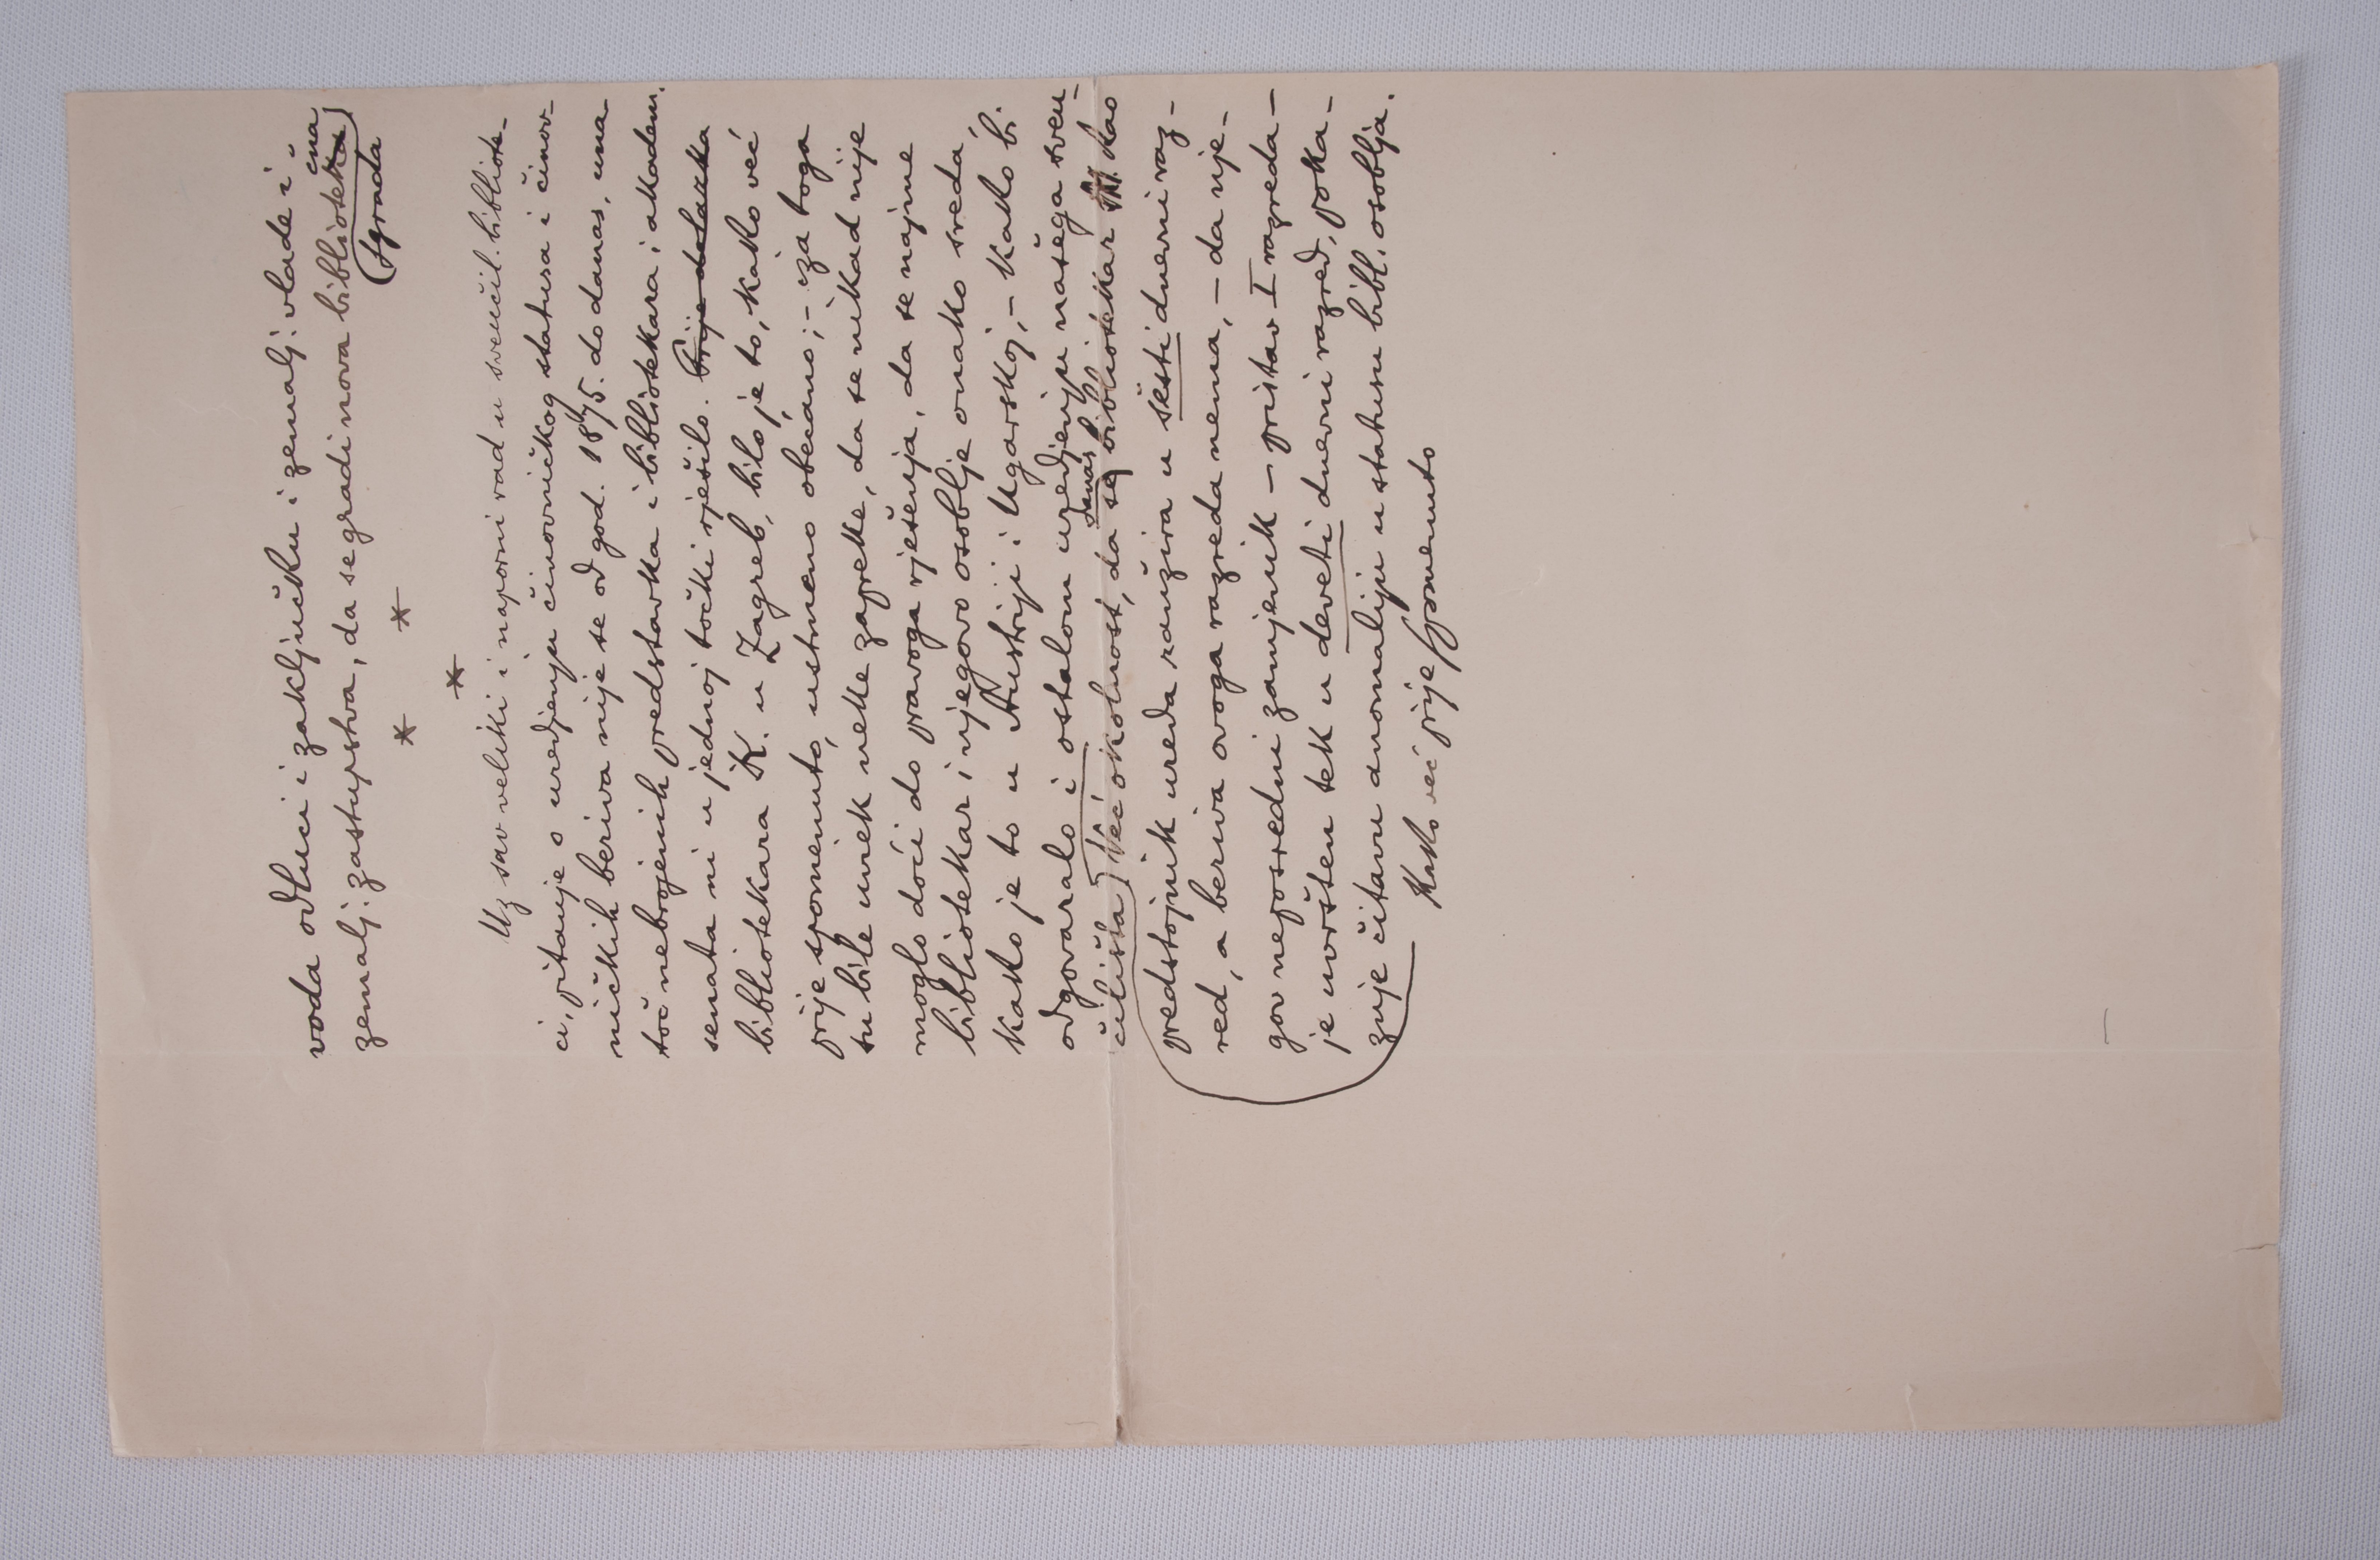 voda odluci i zaključku i zemalj. vlade i
zemalj. zastupstva, da se gradi nova biblioteka čna
zgrada
* * *
Uz sav veliki i naporni rad u sveučil. bibliote-
ci, pitanje o uredjenju činovničkog statusa i činov-
ničkih beriva nije se od god. 1875. do danas, una-
toč nebrojenih predstavka i bibliotekara i akadem.
senata ni u jednoj točki riješilo. Prije dolazka
bibliotekara K. u Zagreb, bilo je to, kako već
prije spomenuto, ustmeno obećano; – iza toga
su bile uviek neke zapreke, da se nikad nije
moglo doći do pravoga rješenja, da se najme
bibliotekar i njegovo osoblje onako sredi
kako je to u Austriji i Ugarskoj, – kako bi
odgovaralo i ostalom uredjenju našega sveu-
čilišta. Već okolnost, da se danas bibliotekar kao
predstojnik ureda ranžira u šesti dnevni raz-
red, a beriva ovoga razreda nema, – da nje-
gov neposredni zamjenik – pristav I razreda –
je uvršten tek u deveti dnevni razred, poka-
zuje čitavu anomaliju u statusu bibl. osoblja.
Kako već prije spomenuto